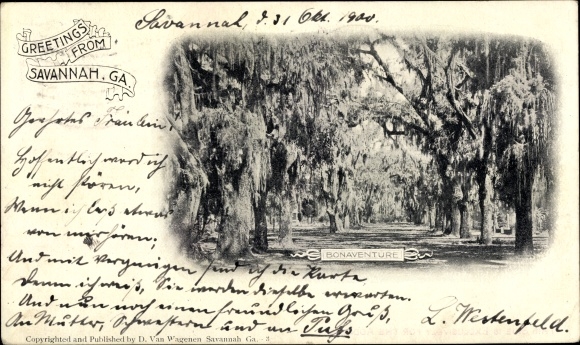 GREETINGS FROM
SAVANNAH, GA.
Savannah, d. 31 Okt. 1900.
Geehrtes Fräulein,
Hoffentlich werd ich
nicht stören,
Wenn ich laß etwas
von mir hören;
Und mit Vergnügen send ich die Karte
Denn ich weiß, Sie werden dieselbe erwarten.
Und nun noch einen freundlichen Gruß,
An Mutter, Schwestern und an
L. Westenfeld.
BONAVENTURE
Copyrighted and Published by D. Van Wagenen Savannah Ga. - 3